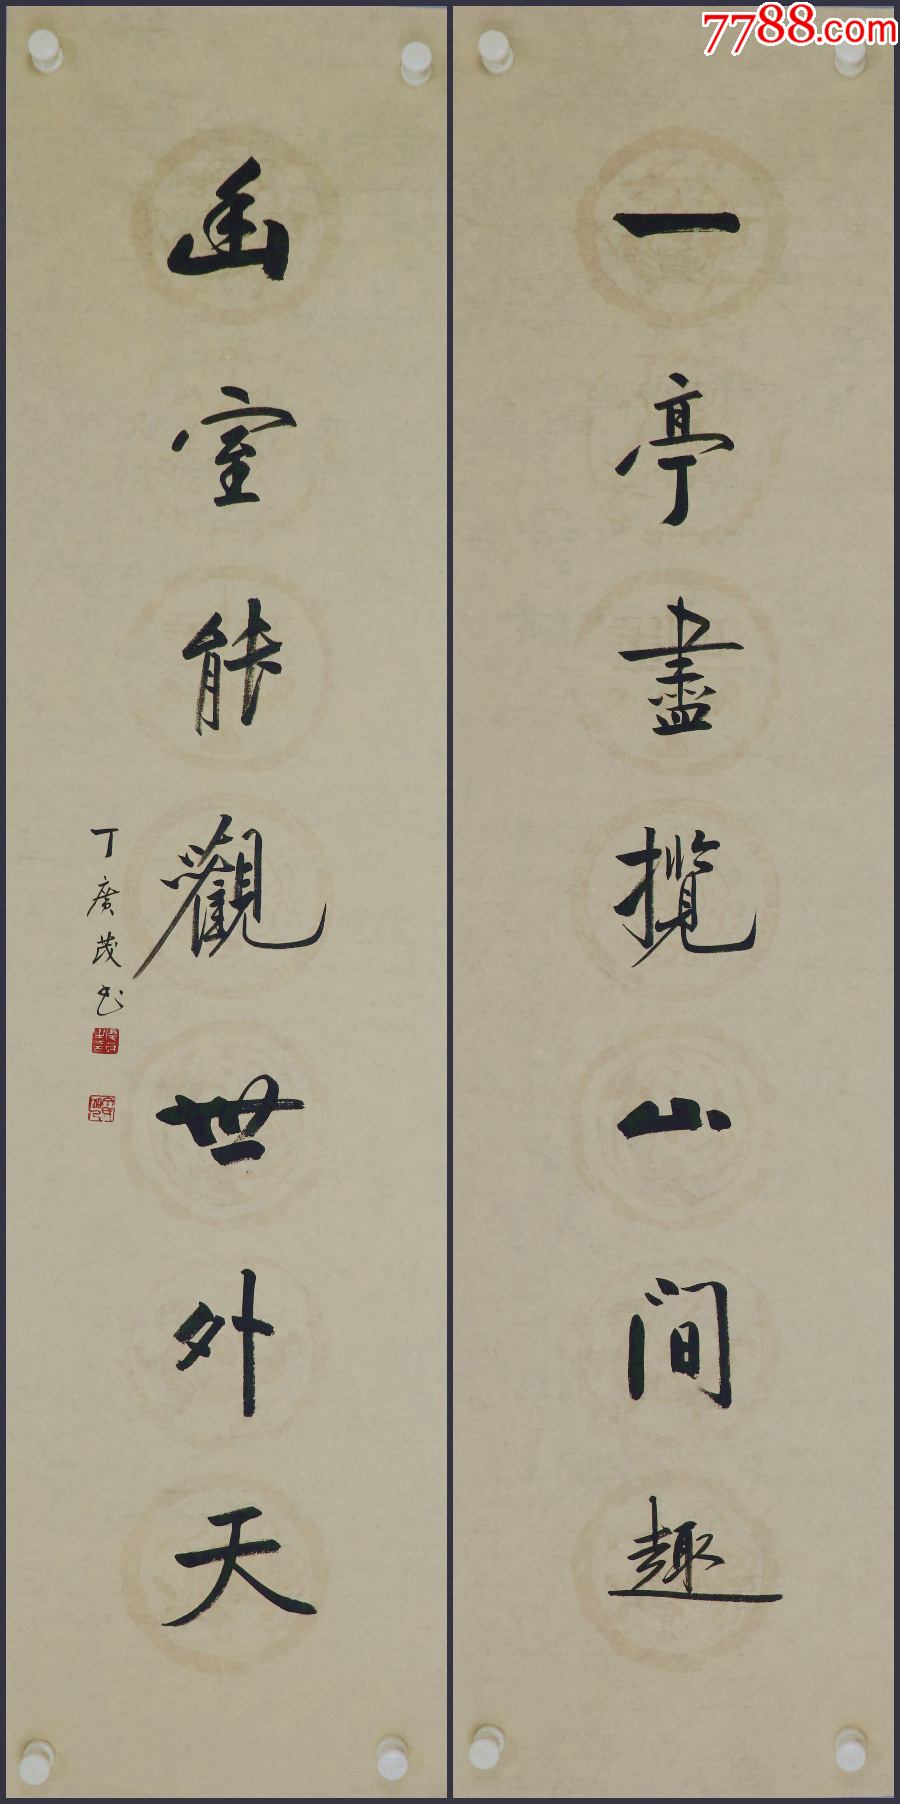 7788.com
一亭盡攬山间趣
幽室能觀世外天
丁廣茂书